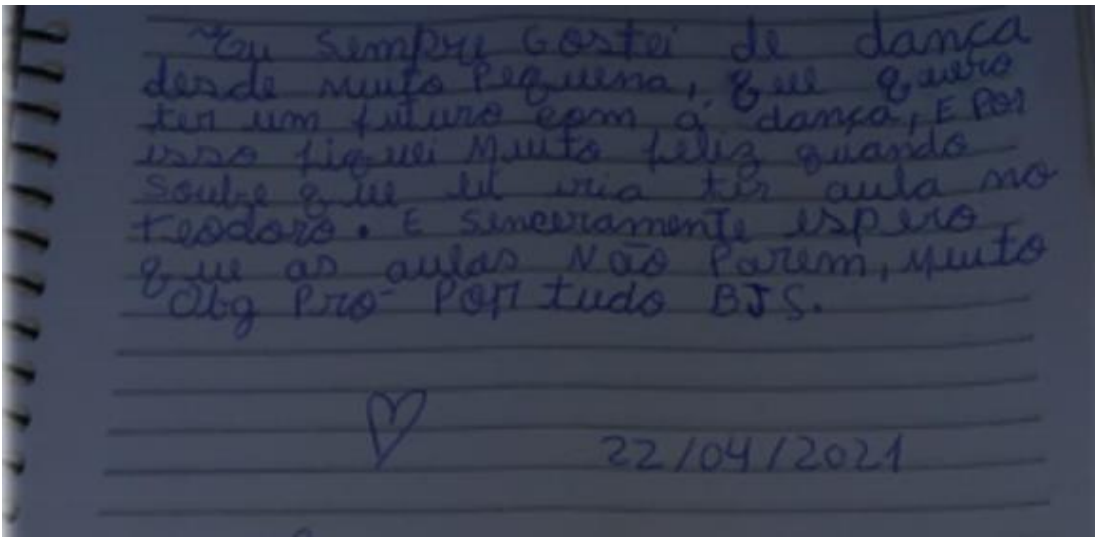 Eu Sempre Gostei de dança
desde muito Pequena, que quero
ter um futuro com a dança, E Por
isso fiquei Muito feliz quando
Soube que eu iria ter aula no
teodoro. E sinceramente espero
que as aulas Não Parem, Muito
Obg Pro Por tudo BJS.
22/04/2021